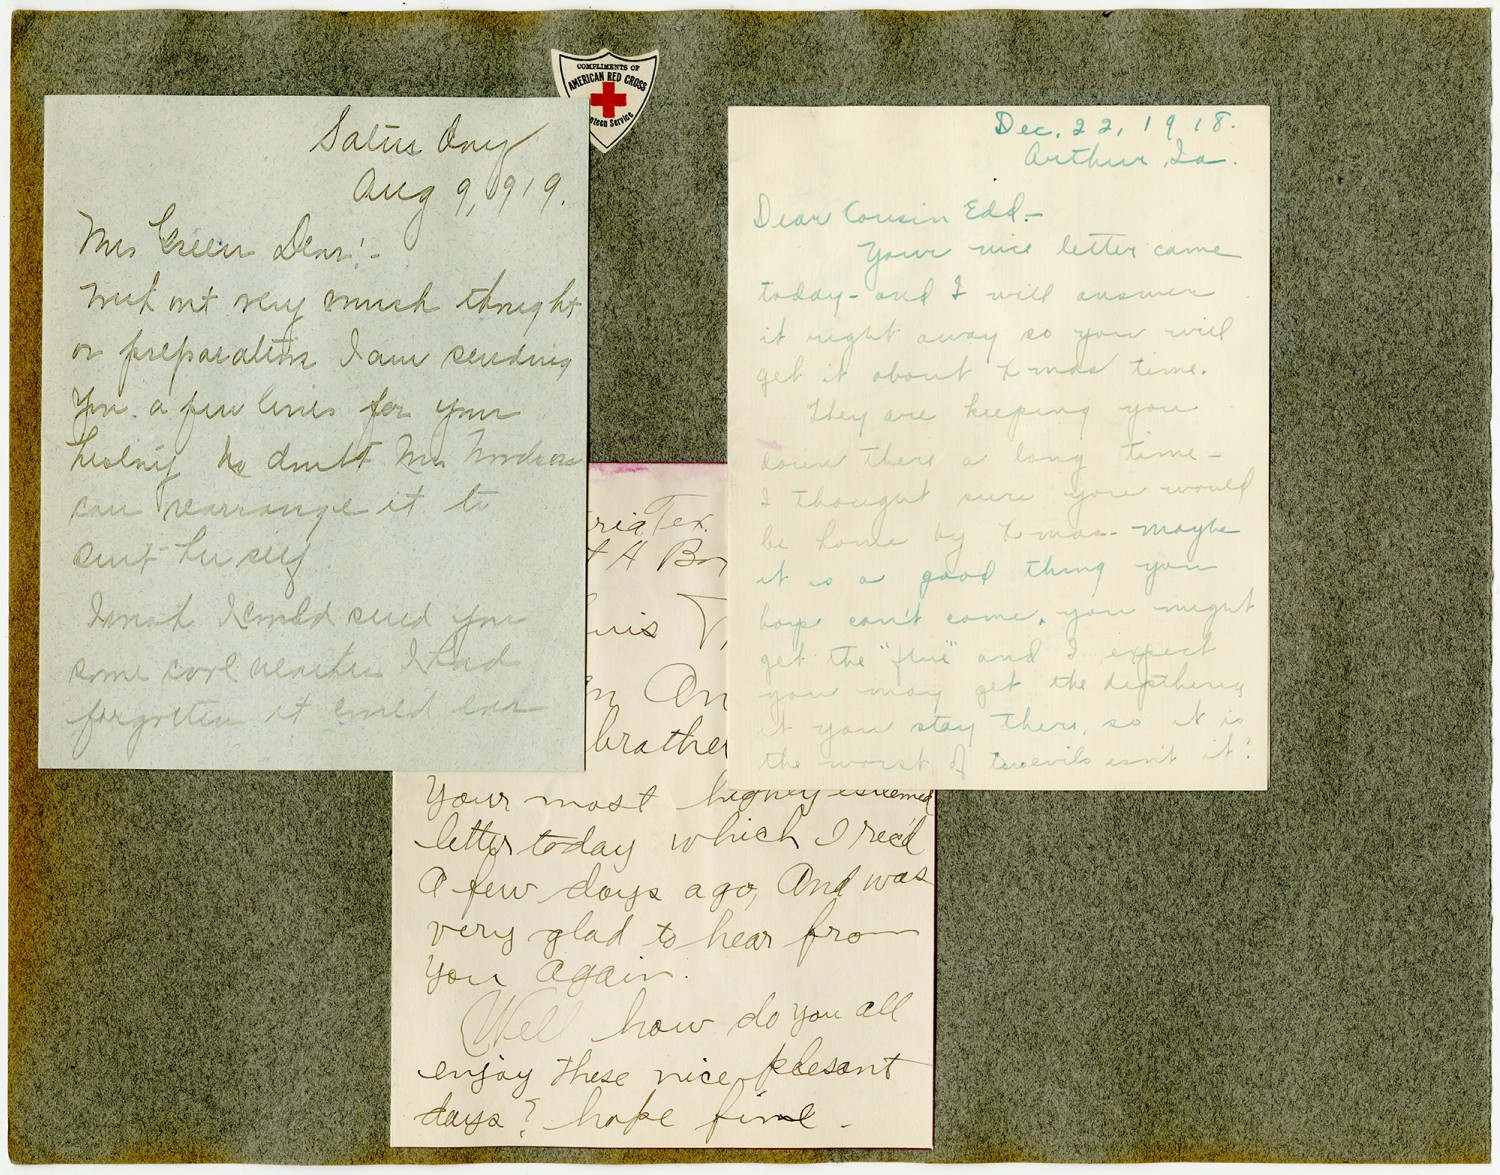 COMPLIMENTS OF
AMERICAN RED CROSS
teen Service
Satur Day
Aug 9, 1919.
Mrs Green Dear:-
With out very much thought
or preparation I am sending
you a few lines for your
history no doubt Mrs
can rearrange it to
suit her self
I wish I could send you
some cool weather I had
forgotten it could ever
Dec. 22, 1918.
Arthur, Ia.
Dear Cousin Edd.-
Your nice letter came
today - and I will answer
it right away so you will
get it about Xmas time.
They are keeping you
down there a long time -
I thought sure you would
be home by Xmas - maybe
it is a good thing you
boys can't come, you might
get the "flue" and I expect
you may get the diptheria
if you stay there, so it is
the worst of two evils isn't it?
ria, Tex.
t A Box
brother
Your most highly esteemed
letter today which I rec'd
a few days ago, And was
very glad to hear from
you again.
Well how do you all
enjoy these nice plesent
days? hope fine.